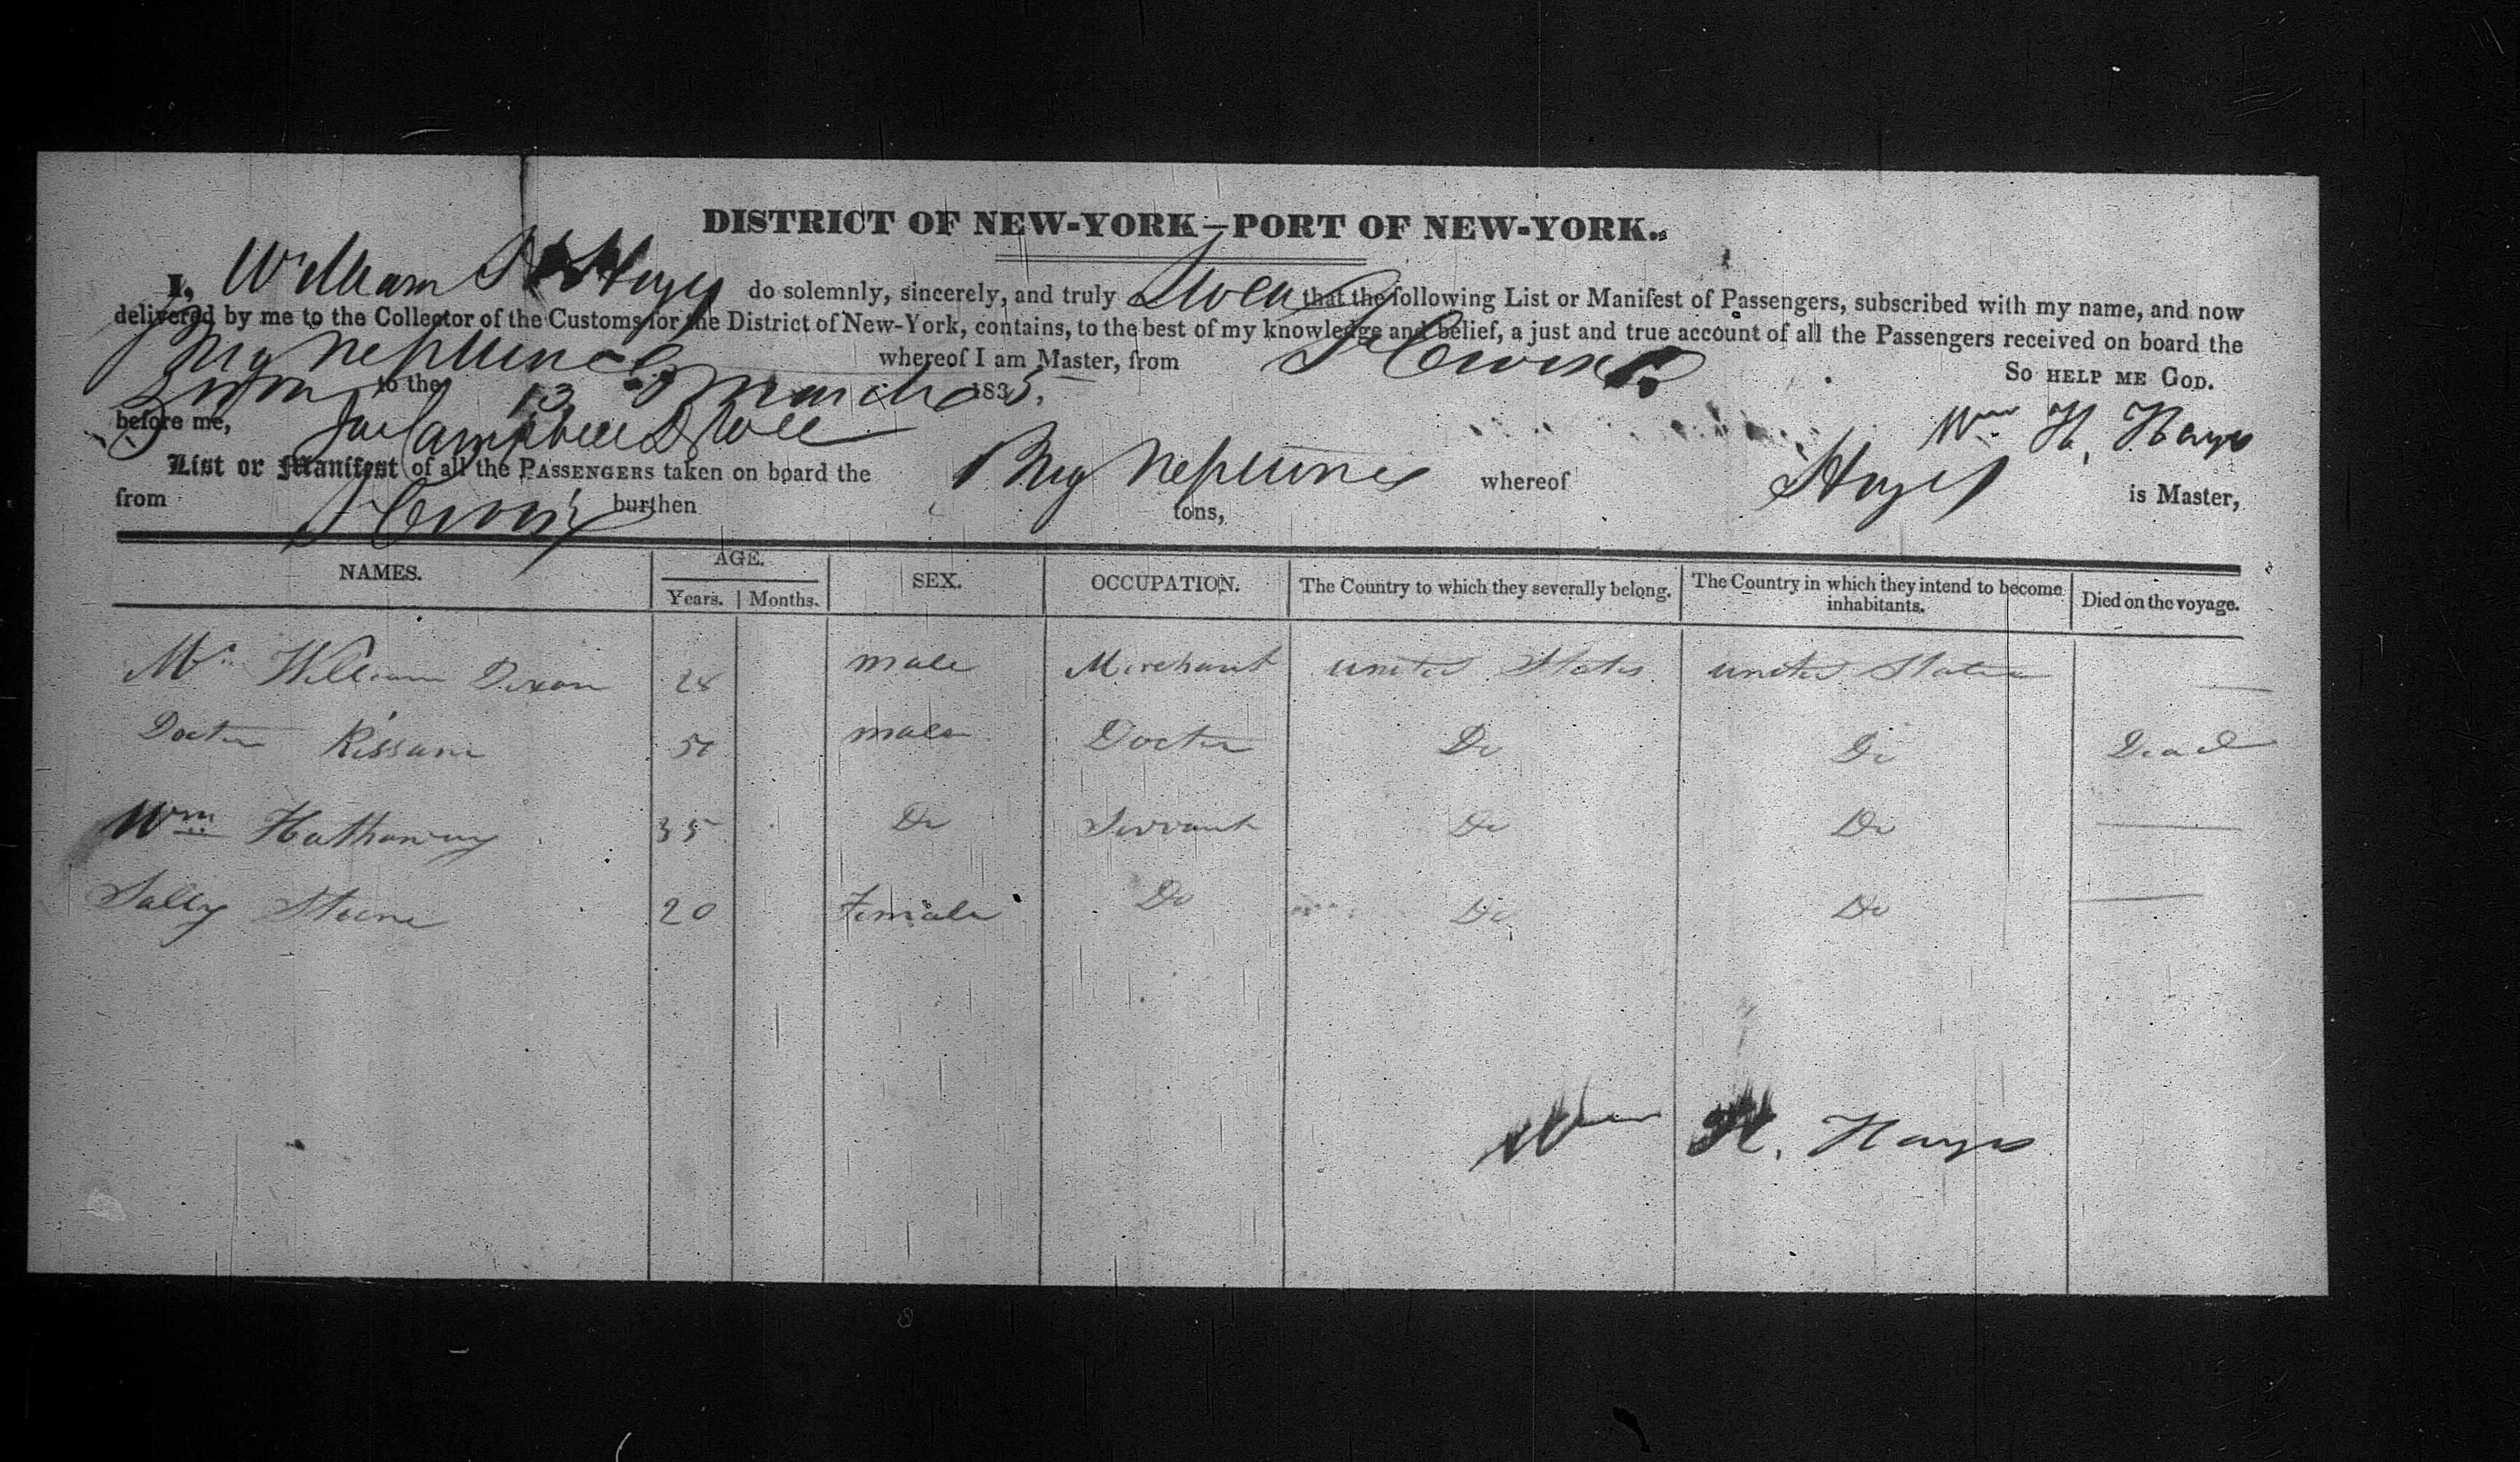 DISTRICT OF NEW-YORK—PORT OF NEW-YORK.
I, William H Hayes do solemnly, sincerely, and truly Swear that the following List or Manifest of Passengers, subscribed with my name, and now
delivered by me to the Collector of the Customs for the District of New-York, contains, to the best of my knowledge and belief, a just and true account of all the Passengers received on board the
Brig Neptune whereof I am Master, from St Croix
So HELP ME GOD.
Sworn to the 13 March 1835.
before me, Wm H. Hayes
List or Manifest of all the PASSENGERS taken on board the Brig Neptune whereof Hayes is Master,
from St Croix burthen tons,
NAMES. AGE. SEX. OCCUPATION. The Country to which they severally belong. The Country in which they intend to become inhabitants. Died on the voyage.
Years. Months.
Mr William Dixon 28 male Merchant united States united States —
Doctor Kissam 50 male Doctor Do Do Dead
Wm Hathaway 35 Do Servant Do Do —
Sally 20 Female Do Do Do —
Wm H. Hayes